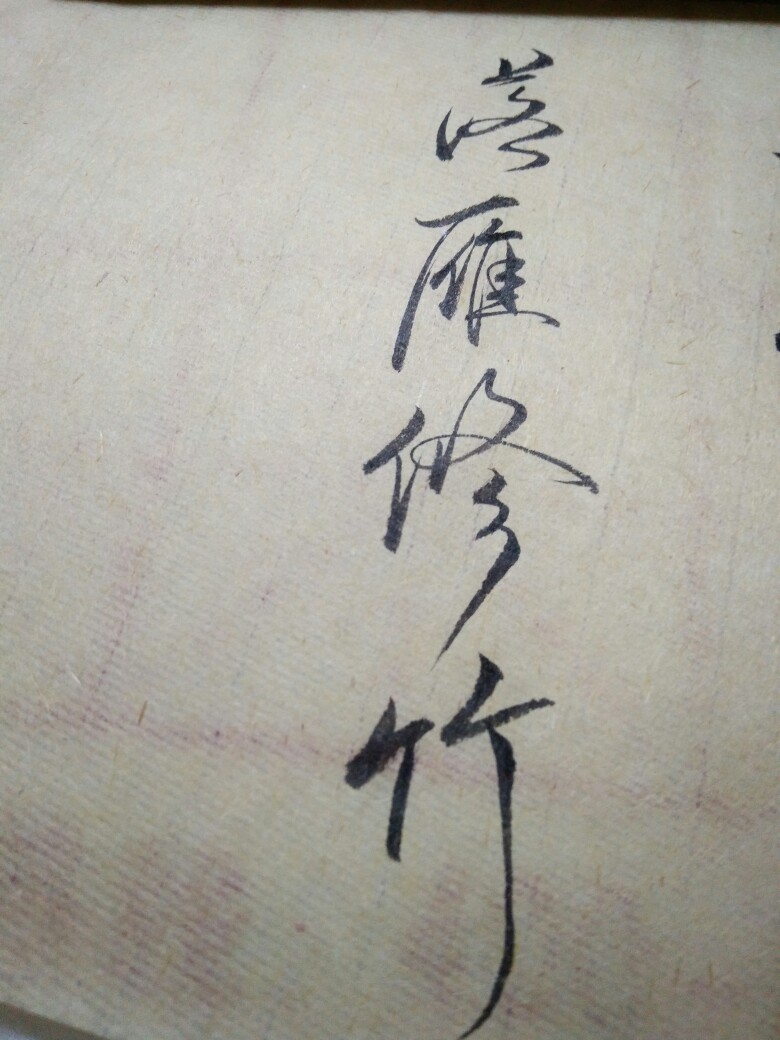 落雁修竹